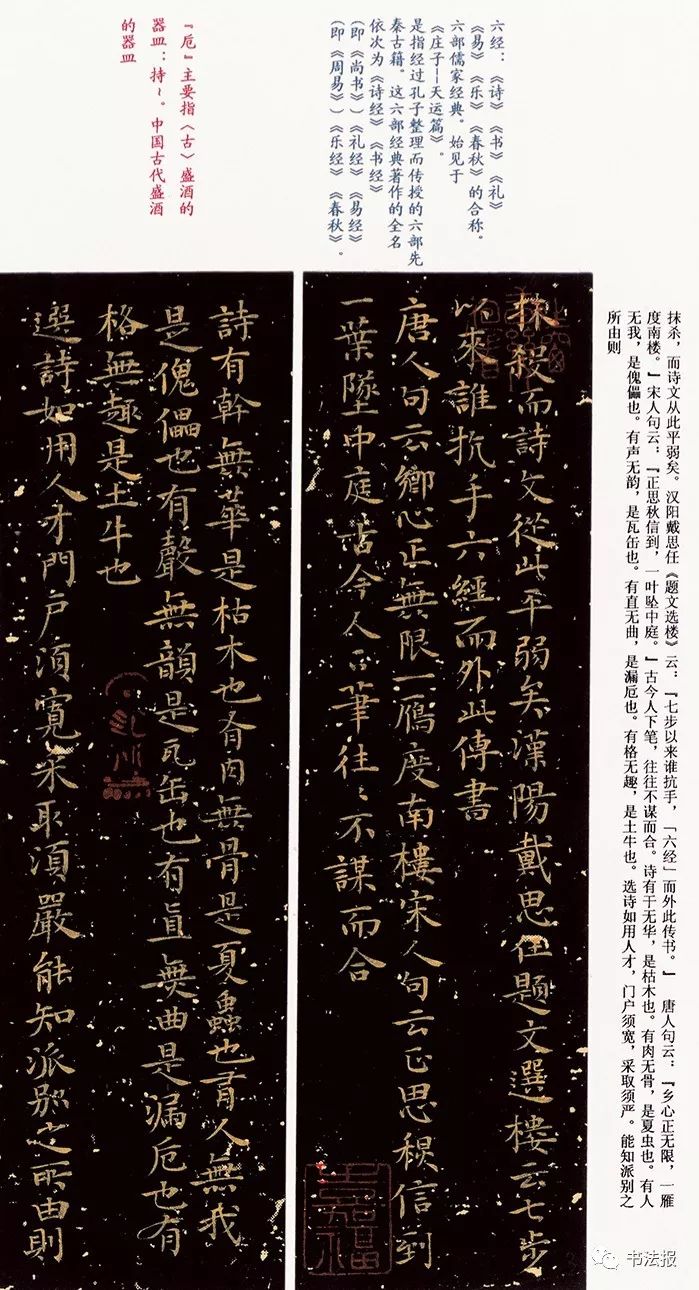 六经：《诗》《书》《礼》
《易》《乐》《春秋》的合称。
六部儒家经典。始见于
《庄子--天运篇》。
是指经过孔子整理而传授的六部先
秦古籍。这六部经典著作的全名
依次为《诗经》《书经》
(即《尚书》)《礼经》《易经》
(即《周易》)《乐经》《春秋》。
『卮』主要指〈古〉盛酒的
器皿：持~。中国古代盛酒
的器皿
抹杀，而诗文从此平弱矣。汉阳戴思任《题文选楼》云：『七步以来谁抗手，「六经」而外此传书。』 唐人句云：『乡心正无限，一雁
度南楼。』宋人句云：『正思秋信到，一叶坠中庭。』古今人下笔，往往不谋而合。诗有干无华，是枯木也。有肉无骨，是夏虫也。有人
无我，是傀儡也。有声无韵，是瓦缶也。有直无曲，是漏卮也。有格无趣，是土牛也。选诗如用人才，门户须宽，采取须严。能知派别之
所由则
抹殺而詩文從此平弱矣漢陽戴思任題文選樓云七步
以來誰抗手六經而外此傳書
唐人句云鄉心正無限一鴈度南樓宋人句云正思秋信到
一葉墜中庭古今人下筆往々不謀而合
詩有幹無華是枯木也有肉無骨是夏蟲也有人無我
是傀儡也有聲無韻是瓦缶也有直無曲是漏卮也有
格無趣是土牛也
選詩如用人才門户須寬采取須嚴能知派別之所由則
书法报